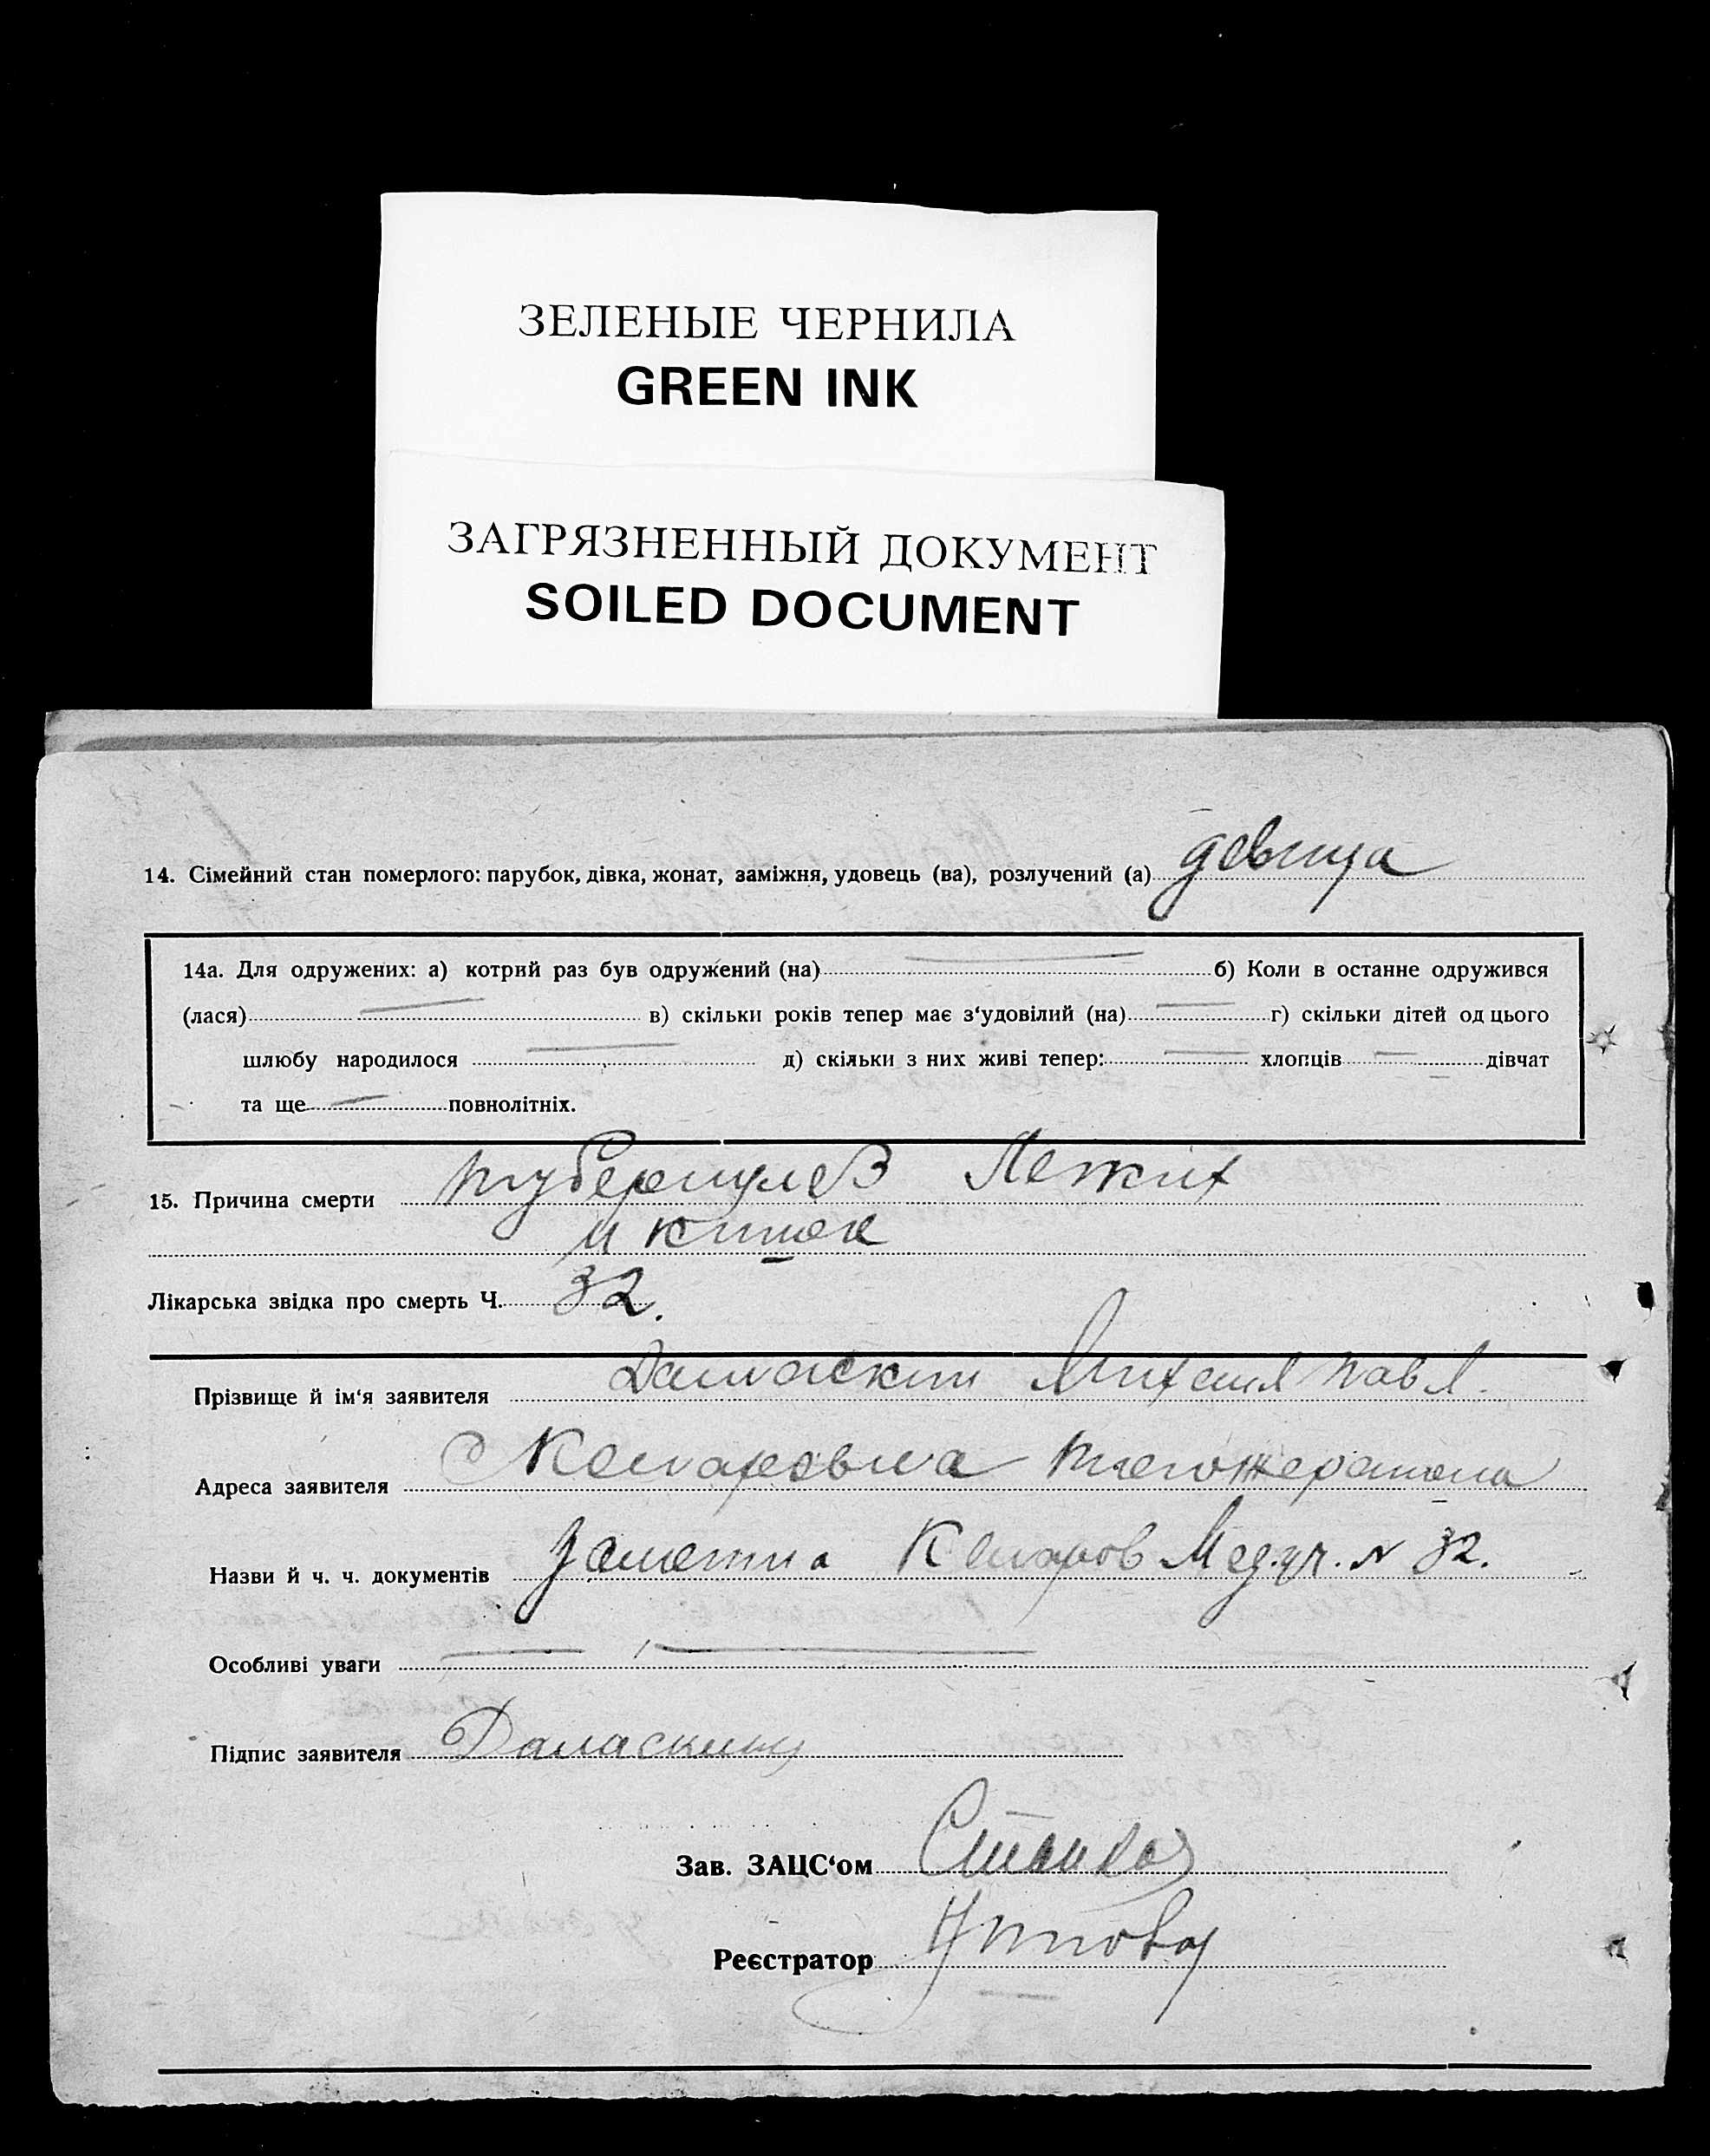 ЗЕЛЕНЫЕ ЧЕРНИЛА
GREEN INK
ЗАГРЯЗНЕННЫЙ ДОКУМЕНТ
SOILED DOCUMENT
14. Сімейний стан померлого: парубок, дівка, жонат, заміжня, удовець (ва), розлучений (а) девица
14а. Для одружених: а) котрий раз був одружений (на) — б) Коли в останне одружився
(лася) — в) скільки років тепер має з‘удовілий (на) — г) скільки дітей од цього
шлюбу народилося — д) скільки з них живі тепер: — хлопців — дівчат
та ще — повнолітніх.
15. Причина смерти туберкулез Легких
и кишек
Лікарська звідка про смерть Ч. 32.
Прізвище й ім‘я заявителя Дамаскин Михаил Павл.
Адреса заявителя с Комаровка
Назви й ч. ч. документів Заметка Комаров Мед.уч. N 32.
Особливі уваги —
Підпис заявителя Дамаскин
Зав. ЗАЦС‘ом
Реєстратор